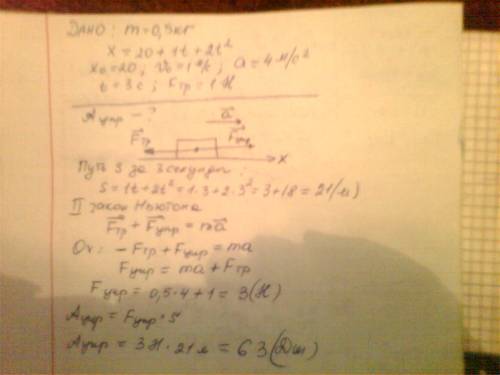 Дано: m=0,5кг
x=20+1t+2t²
x₀=20; v₀=1м/с; a=4м/с²
t=3с; Fтр=1Н
Aупр-?
a
Fтр Fупр
x
Путь S за 3 секунды:
S=1t+2t²=1·3+2·3²=3+18=21(м)
II закон Ньютона
Fтр+Fупр=ma
Ox: -Fтр+Fупр=ma
Fупр=ma+Fтр
Fупр=0,5·4+1=3(Н)
Aупр=Fупр·S
Aупр=3Н·21м=63(Дж)